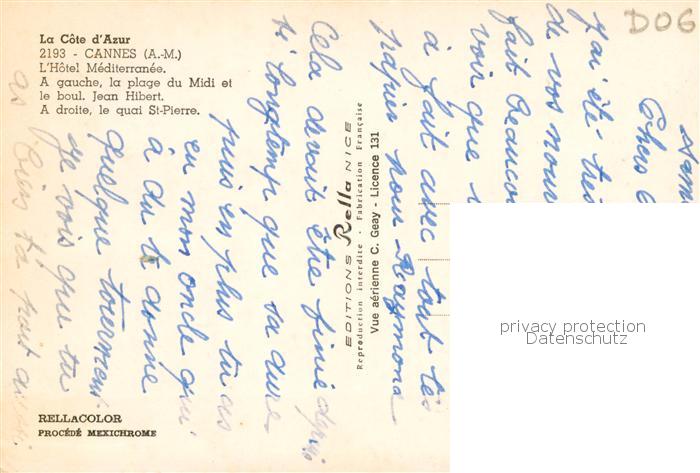 La Côte d'Azur
2193 - CANNES (A.-M.)
L'Hôtel Méditerranée.
A gauche, la plage du Midi et
le boul. Jean Hibert.
A droite, le quai St-Pierre.
RELLACOLOR
PROCÉDÉ MEXICHROME
EDITIONS Rella NICE
Reproduction interdite - Fabrication Française
Vue aérienne C. Geay - Licence 131
D06
Chers
j'ai été très
de vos nouv
fait beaucou
voir que
a fait avec tout tes
papier pour Raymond
Cela devait être finie depuis
si longtemp que sa dure
puis en plus tu as
en mon oncle qui
a du te donne
quelque tourment
je vois que tu
as bien
privacy protection
DokuAnsichtskarten